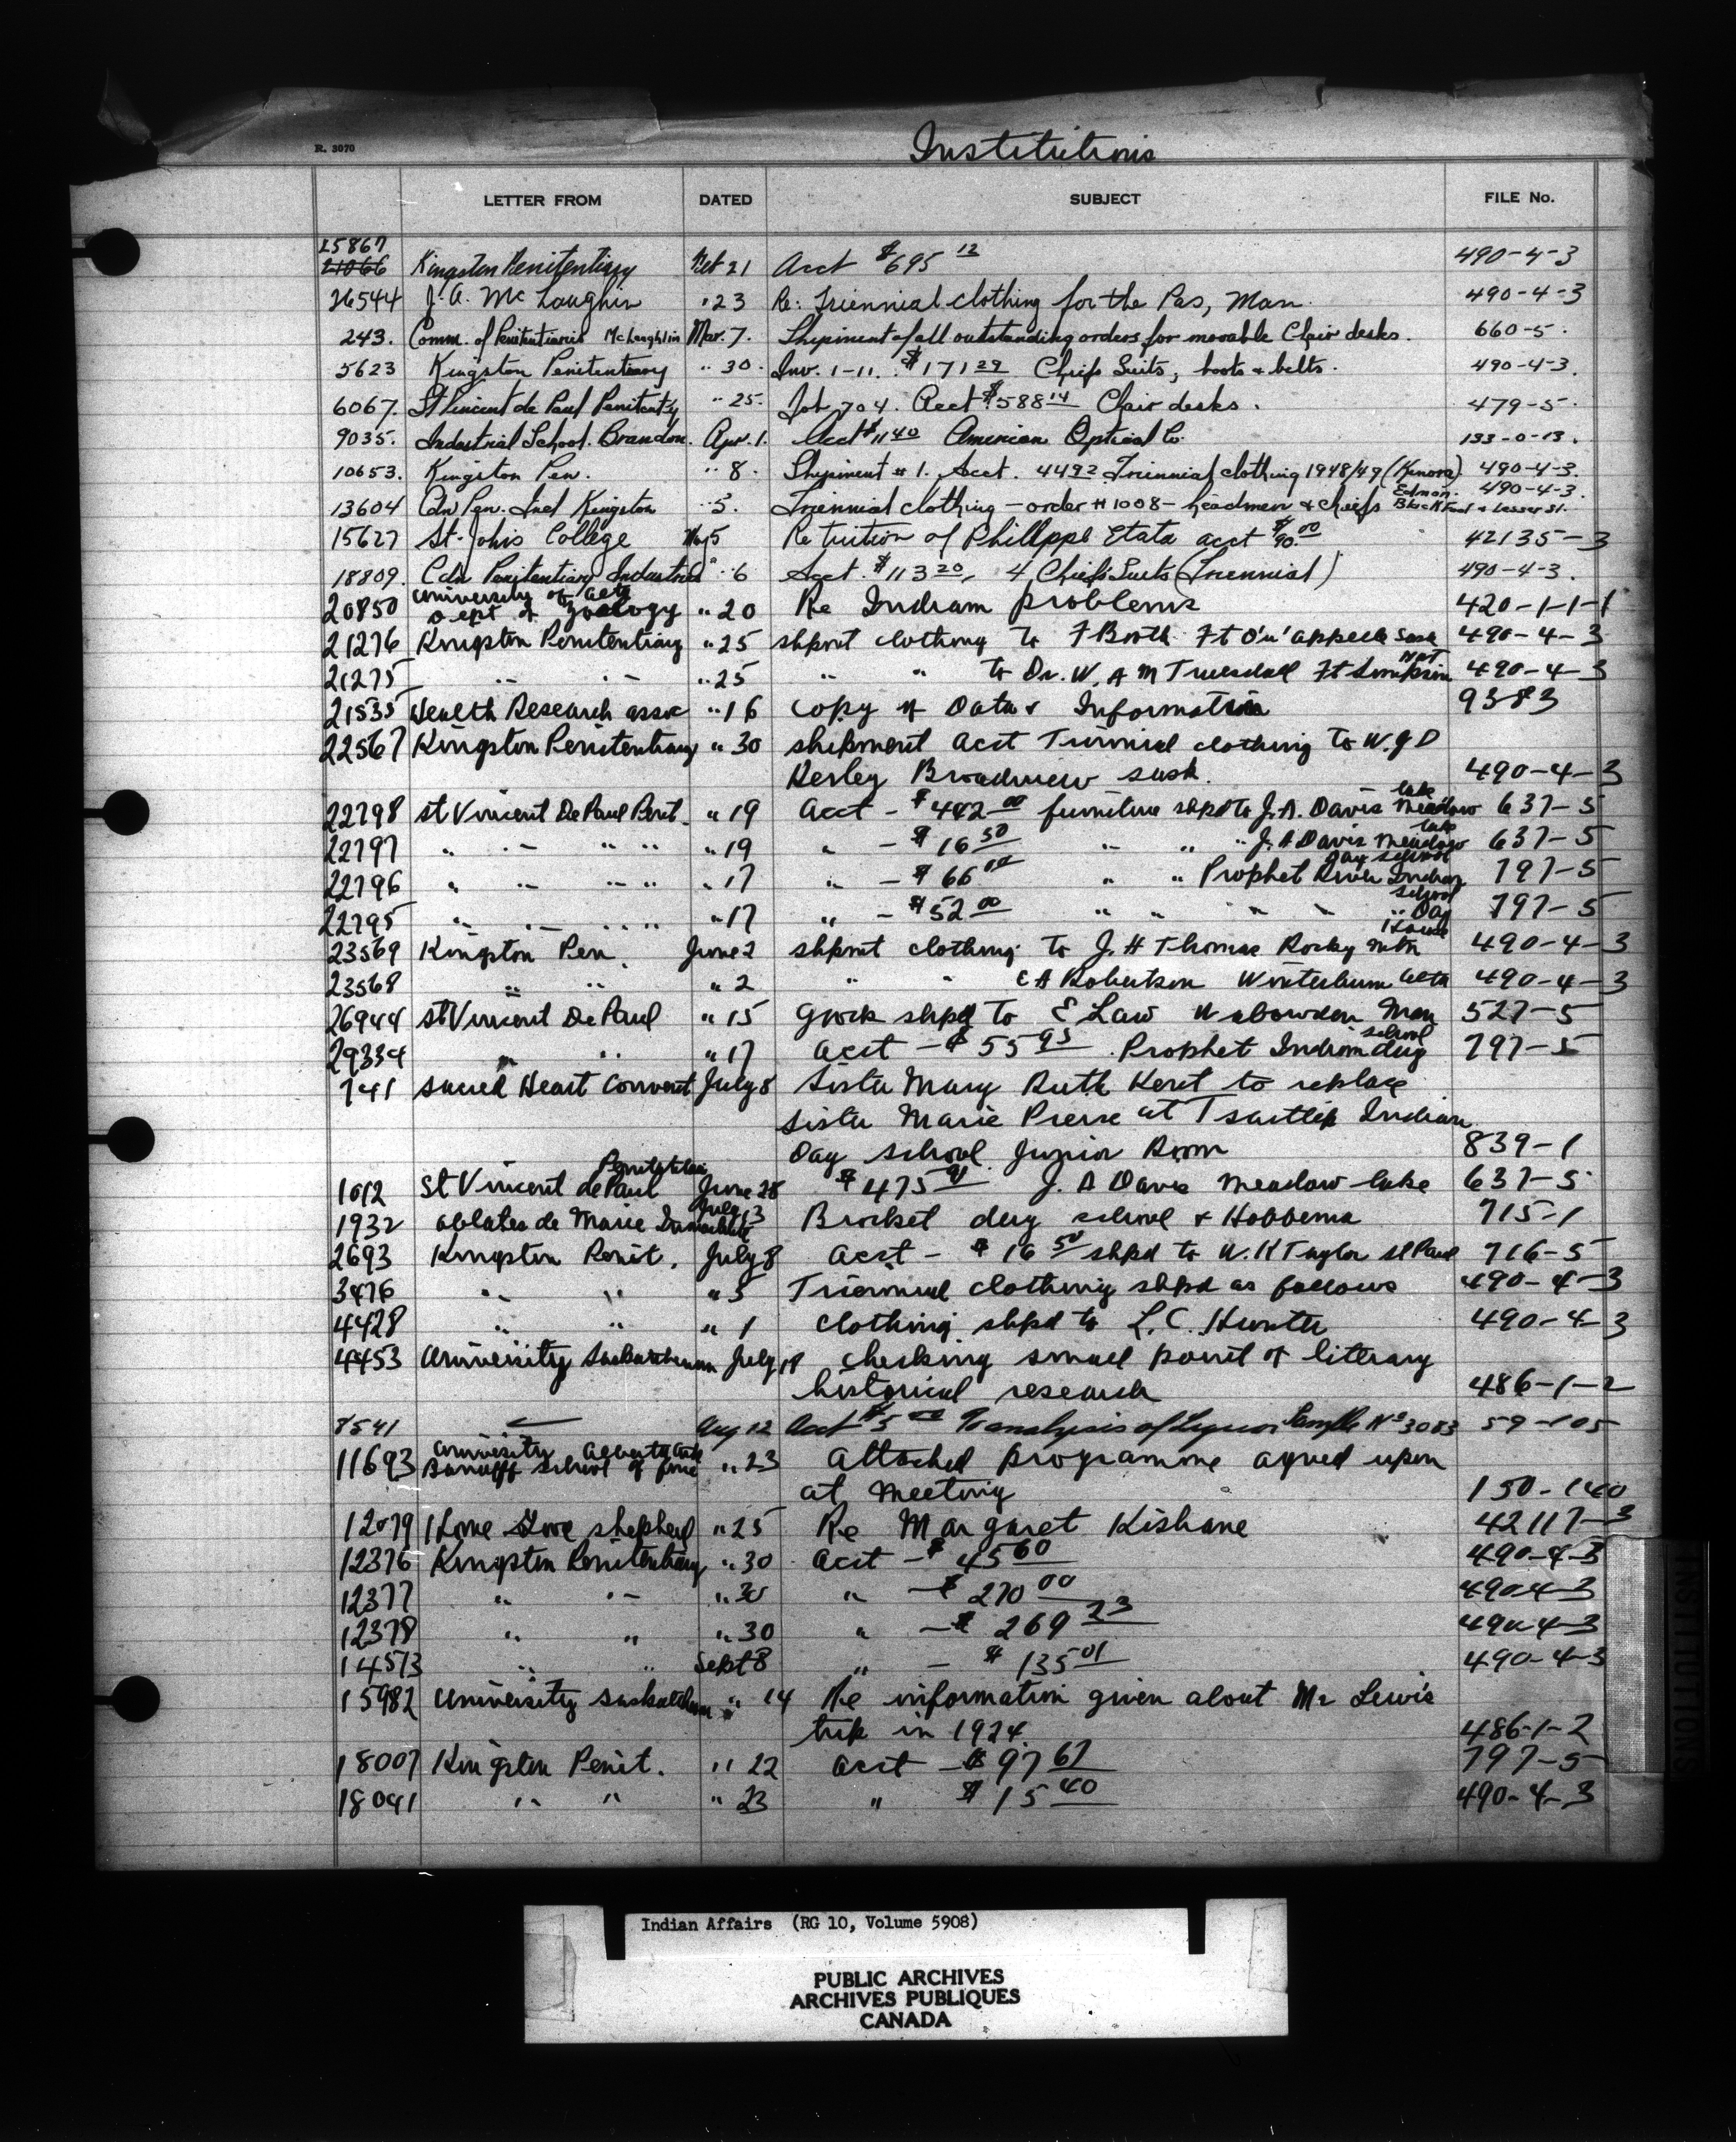 Institutions
R. 3070
LETTER FROM DATED SUBJECT FILE No.
25867
21066 Kingston Penitentiary Feb 21 Acct $695 12 490-4-3
26544 J. A. McLaughlin " 23 Re: Triennial clothing for the Pas, Man. 490-4-3
243. Comm. of Penitentiaries McLaughlin Mar. 7. Shipment of all outstanding orders for movable Chair desks. 660-5.
5623 Kingston Penitentiary " 30. Inv. 1-11. $171 29 Chiefs Suits, boots & belts. 490-4-3.
6067. St Vincent de Paul Penitent'y " 25. Job 704. Acct $588 14 Chair desks. 479-5.
9035. Industrial School. Brandon. Apr. 1. Acct $11 40 American Optical Co. 133-0-13.
10653. Kingston Pen. " 8. Shipment #1. Acct. 44 92 Triennial clothing 1948/49 (Kenora) 490-4-3.
13604 Cdn Pen. Ind Kingston " 5. Triennial clothing - order #1008 - headmen & chiefs Edmon. Blackfoot & Lesser Sl. 490-4-3.
15627 St. Johis College May 5 Re tuition of Phillppe Etata acct $90.00 42135-3
18809. Cdn Penitentiary Industries " 6 Acct. $113 20, 4 Chiefs Suits (Triennial) 490-4-3.
20850 University of Alta Dept of Zoology " 20 Re Indiam problems 420-1-1-1
21276 Kingston Penitentiary " 25 shpmt clothing to F Booth Ft Qu'appelle Sask 490-4-3
21275 " " " 25 " " to Dr. W. A M Truesdall Ft Simpson NWT 490-4-3
21535 Wealth Research assoc " 16 copy of Data & Information 9383
22567 Kingston Penitentiary " 30 shipment acct Triennial clothing to W. J D
Kerley Broadview sask. 490-4-3
22798 St Vincent De Paul Penit. " 19 Acct - $442 00 furniture shpd to J. A. Davis Meadow lake 637-5
22797 " " " " " 19 " - $16 50 " " " J. A Davis Meadow lake 637-5
22796 " " " " " 17 " - $66 00 " " Prophet River Indian Day School 797-5
22795 " " " " " 17 " - $52 00 " " " " " Day school 797-5
23569 Kingston Pen. June 2 shpmt clothing to J. H Thomas Rocky Mtn House 490-4-3
23568 " " " 2 " " E A Robertson Winterburn Alta 490-4-3
26944 St Vincent De Paul " 15 shpd to E Law Wabowden Man 527-5
29334 " " " 17 acct - $55 95 Prophet Indian day school 797-5
741 Sacred Heart Convent July 8 Sister Mary Ruth Keret to replace
Sister Marie Pierre at Tsartlip Indian
Day school Junior Room 839-1
1012 St Vincent de Paul Penitentiary June 28 $475 91 J. A Davis Meadow lake 637-5
1932 oblates de Marie Immaculate July 13 Brocket day school & Hobbema 715-1
2693 Kingston Penit. July 8 acct - $16 50 shpd to W. K Taylor St Paul 716-5
3476 " " " 5 Triennial clothing shpd as follows 490-4-3
4428 " " " 1 clothing shpd to L. C. Hunter 490-4-3
4453 University Saskatchewan July 19 checking small point of literary
historical research 486-1-2
8541 Aug 12 Acct $5 00 To analysis of Liquor Sample No 3083 59-105
11693 University Alberta Bannff School of fine arts " 23 attached programme agreed upon
at meeting 150-140
12079 Home Shepherd " 25 Re Margaret Kishane 42117-3
12376 Kingston Penitentiary " 30 acct - $45 60 490-4-3
12377 " " " 30 " - $270 00 490-4-3
12378 " " " 30 " - $269 23 490-4-3
14573 " " Sept 8 " - $135 01 490-4-3
15982 University Saskatchewan " 14 Re information given about Mr Lewis
trip in 1924. 486-1-2
18007 Kingston Penit. " 22 acct - $97 67 797-5
18041 " " " 23 " $15 40 490-4-3
INSTITUTIONS
Indian Affairs (RG 10, Volume 5908)
PUBLIC ARCHIVES
ARCHIVES PUBLIQUES
CANADA